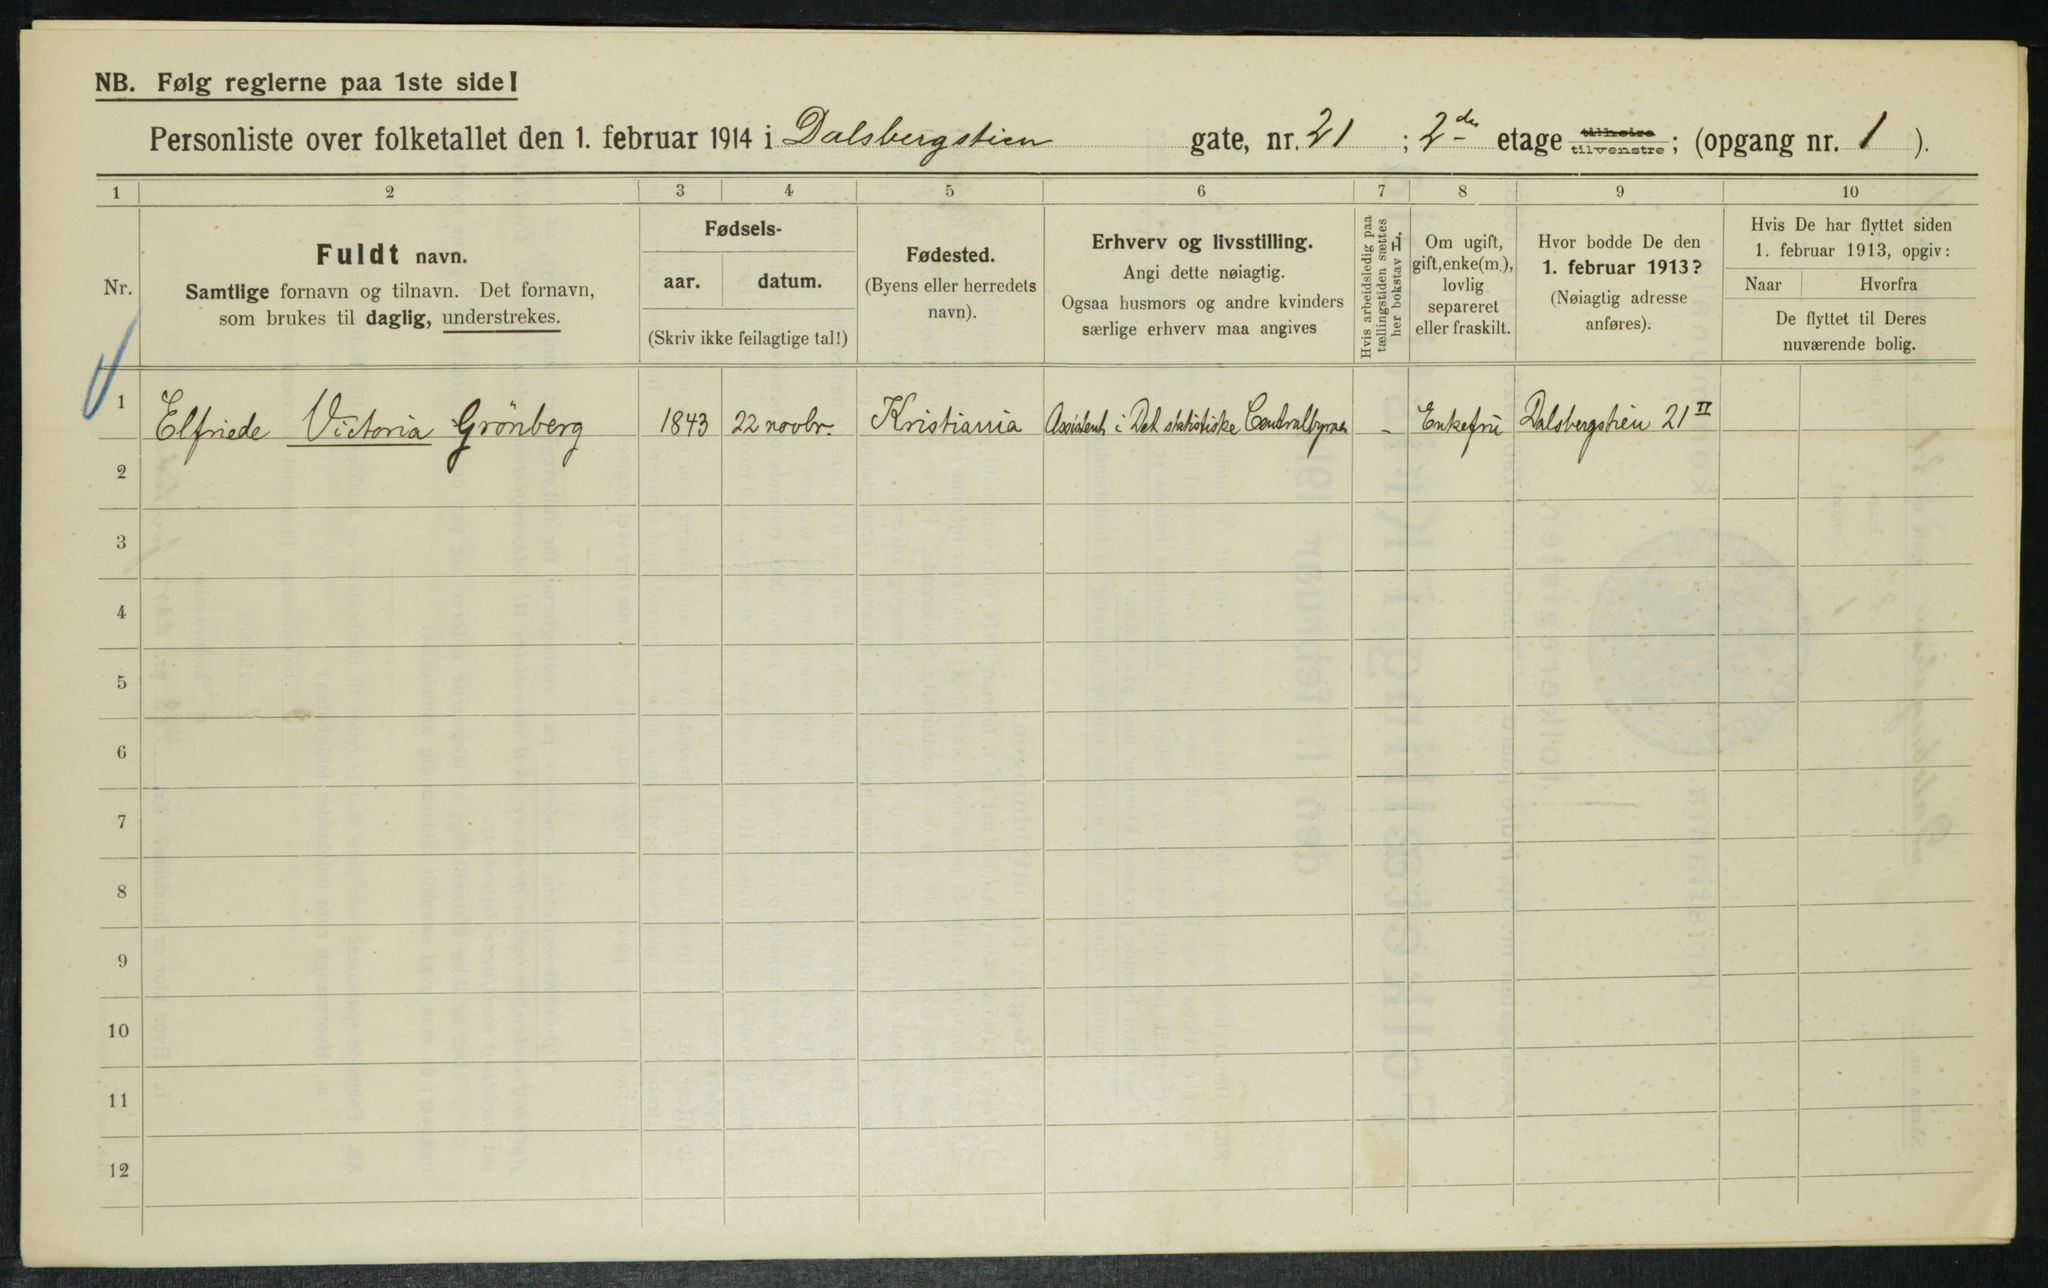 NB. Følg reglerne paa 1ste side!
Personliste over folketallet den 1. februar 1914 i Dalsbergstien gate, nr. 21 ; 2den etage tilhøire tilvenstre ; (opgang nr. 1 ).
1 2 3 4 5 6 7 8 9 10
Nr.
Fuldt navn.
Samtlige fornavn og tilnavn. Det fornavn,
som brukes til daglig, understrekes.
Fødsels-
aar. datum.
(Skriv ikke feilagtige tal!)
Fødested.
(Byens eller herredets
navn).
Erhverv og livsstilling.
Angi dette nøiagtig.
Ogsaa husmors og andre kvinders
særlige erhverv maa angives
Hvis arbeidsledig paa
tællingstiden sættes
her bokstav L.
Om ugift,
gift, enke(m.),
lovlig
separeret
eller fraskilt.
Hvor bodde De den
1. februar 1913?
(Nøiagtig adresse
anføres).
Hvis De har flyttet siden
1. februar 1913, opgiv:
Naar Hvorfra
De flyttet til Deres
nuværende bolig.
1 Elfriede Victoria Grönberg 1843 22 novbr. Kristiania Assistent i Det statistiske Centralbyraa - Enkefru Dalsbergstien 21 II
2
3
4
5
6
7
8
9
10
11
12